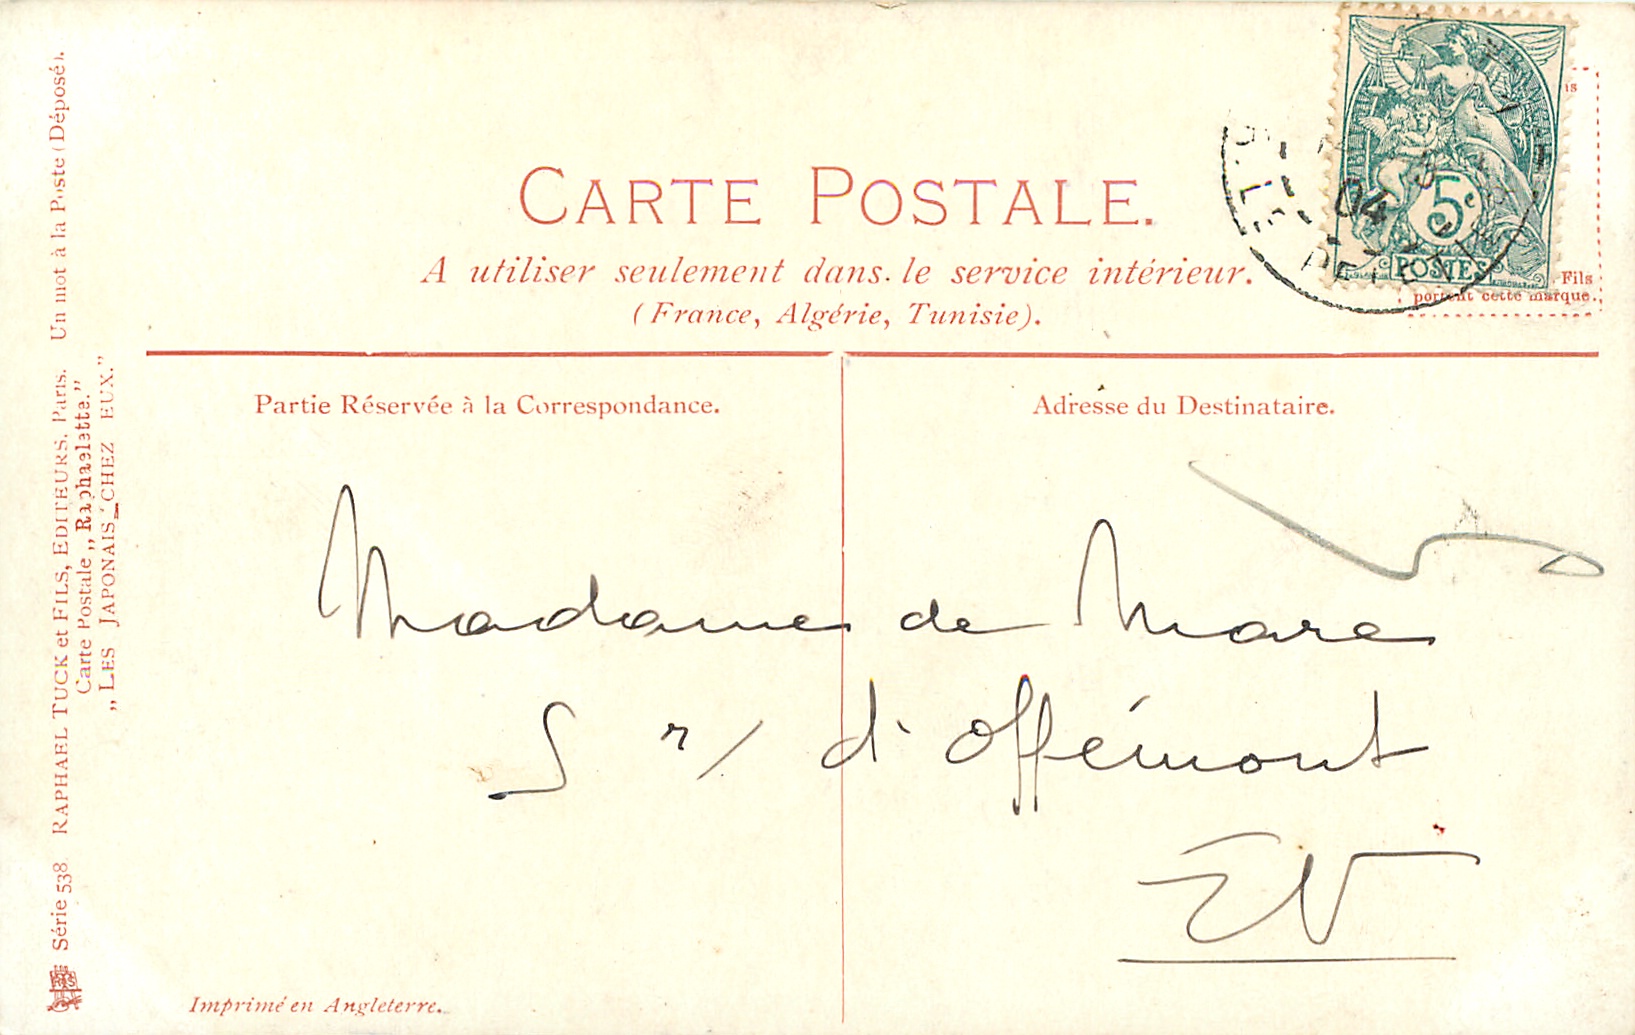 CARTE POSTALE.
A utiliser seulement dans le service intérieur.
(France, Algérie, Tunisie).
5c
POSTES
04
Fils
portent cette marque.
Partie Réservée à la Correspondance.
Adresse du Destinataire.
Madame de Mare
5 r/ d'Offémont
EV
Imprimé en Angleterre.
Série 538 RAPHAEL TUCK et FILS, EDITEURS. Paris. Un mot à la Poste (Déposé).
Carte Postale „Raphaelette.”
„LES JAPONAIS CHEZ EUX.”